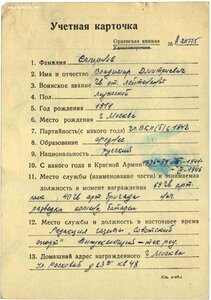 Учетная карточка
Орденская книжка
Удостоверение № 
1. Фамилия
2. Имя и отчество Владимир Дмитриевич
3. Воинское звание гв. ст. лейтенант
4. Пол мужской
5. Год рождения 1914
6. Место рождения г. Москва
7. Партийность (с какого года) чл. ВКП(б) с 1942
8. Образование среднее
9. Национальность русский
10. С какого года в Красной Армии
11. Место службы (наименование части) и занимаемая
должность в момент награждения 69 гв. арт.
полк 40 гв. арт. бригада нач.
разведки батареи
12. Место службы и должность в настоящее время
Редакция газеты "Советский
спорт"
13. Домашний адрес награжденного г. Москва
ул. Расковой д кв 48
(См. н об.)